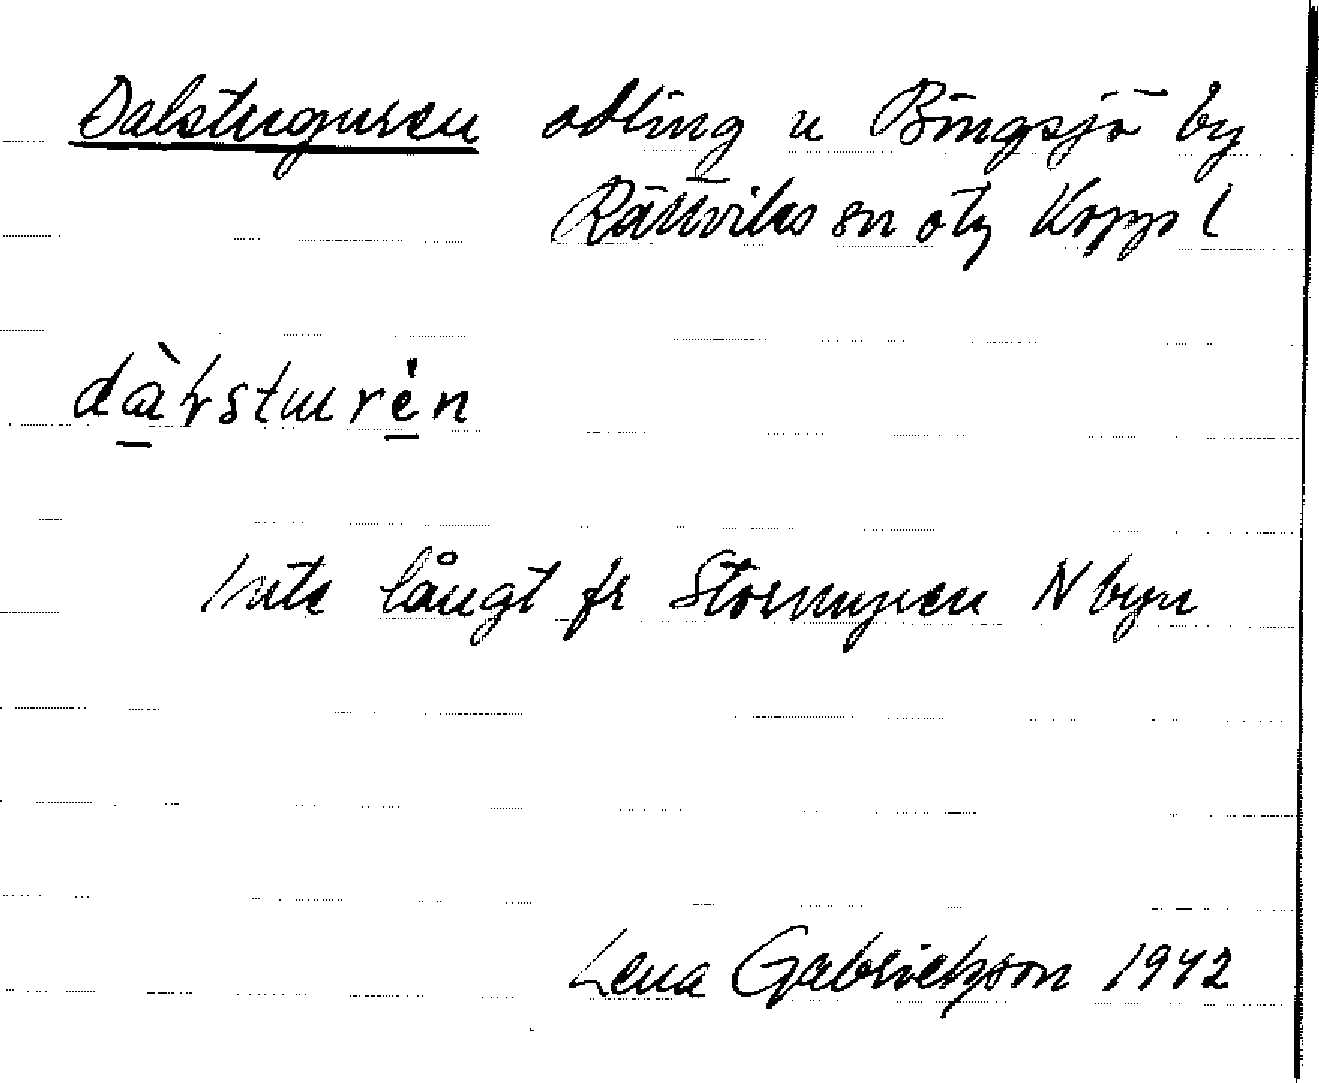 Dalstuguren odling u Bingsjö by
Rättviks sn otg Kopp l
Inte långt fr Stormyren N byn
Lena Gabrielsson 1942